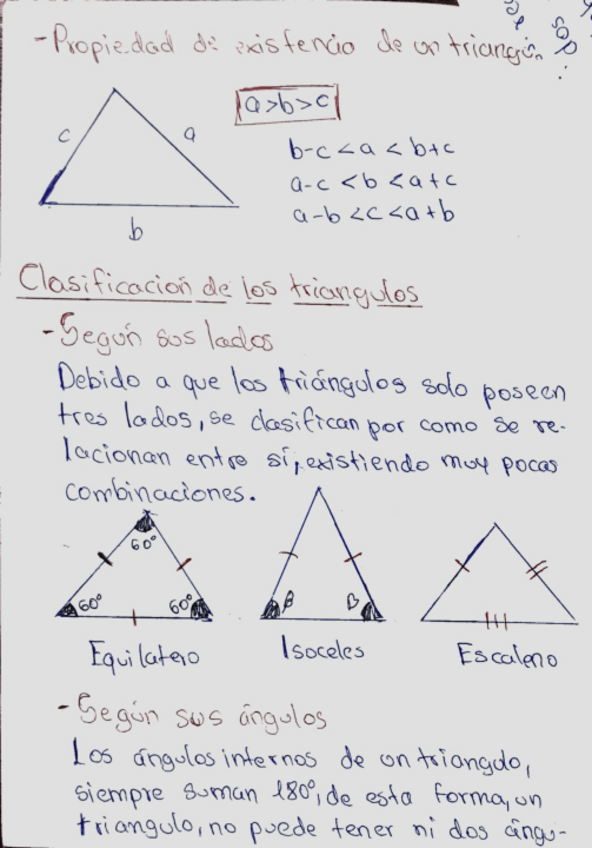 -Propiedad de existencia de un triangu
c
a
b
a>b>c
b-c<a<b+c
a-c<b<a+c
a-b<c<a+b
Clasificación de los triangulos
-Según sus lados
Debido a que los triángulos solo poseen
tres lados, se clasifican por como se re-
lacionan entre sí, existiendo muy pocas
combinaciones.
60°
60°
60°
β
β
Equilatero
Isoceles
Escaleno
-Según sus ángulos
Los ángulos internos de un triangulo,
siempre suman 180°, de esta forma, un
triangulo, no puede tener ni dos ángu-